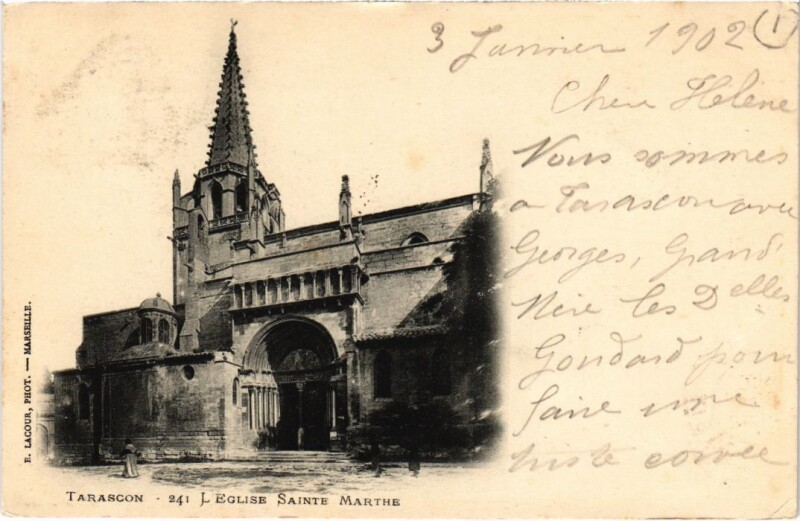 3 Janvier 1902
1
Chere Hélène
Nous sommes
a Tarascon avec
Georges, Grand'
Mère les Delles
Gondard pour
faire une
triste corvee
E. LACOUR, PHOT. — MARSEILLE.
TARASCON - 241 L'EGLISE SAINTE MARTHE